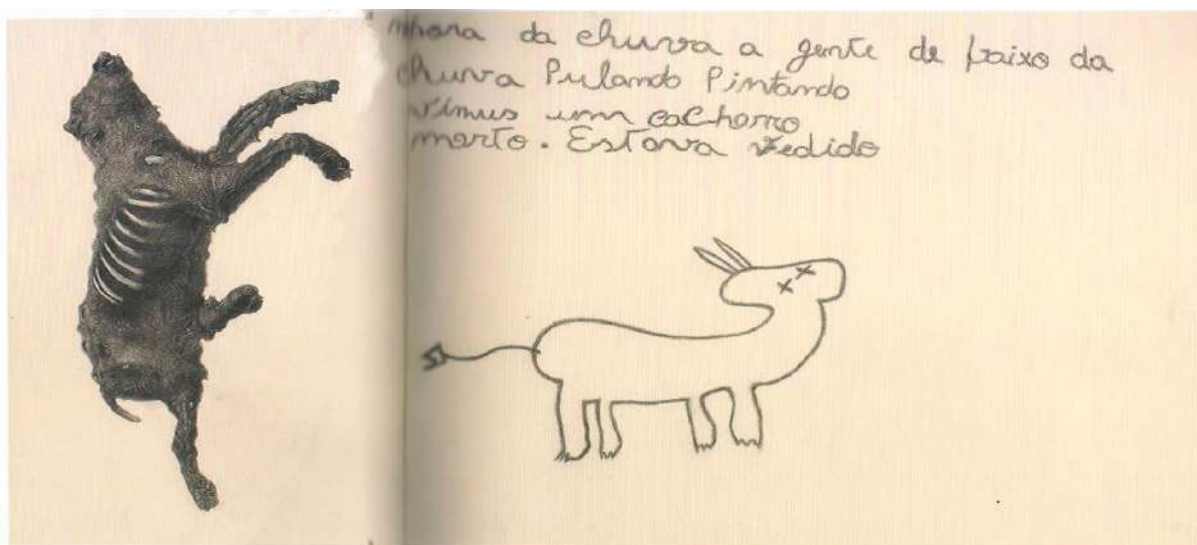 mhona da chuva a gente de baixo da
chuva Pulando Pintando
vimus um cachorro
morto. Estava fedido